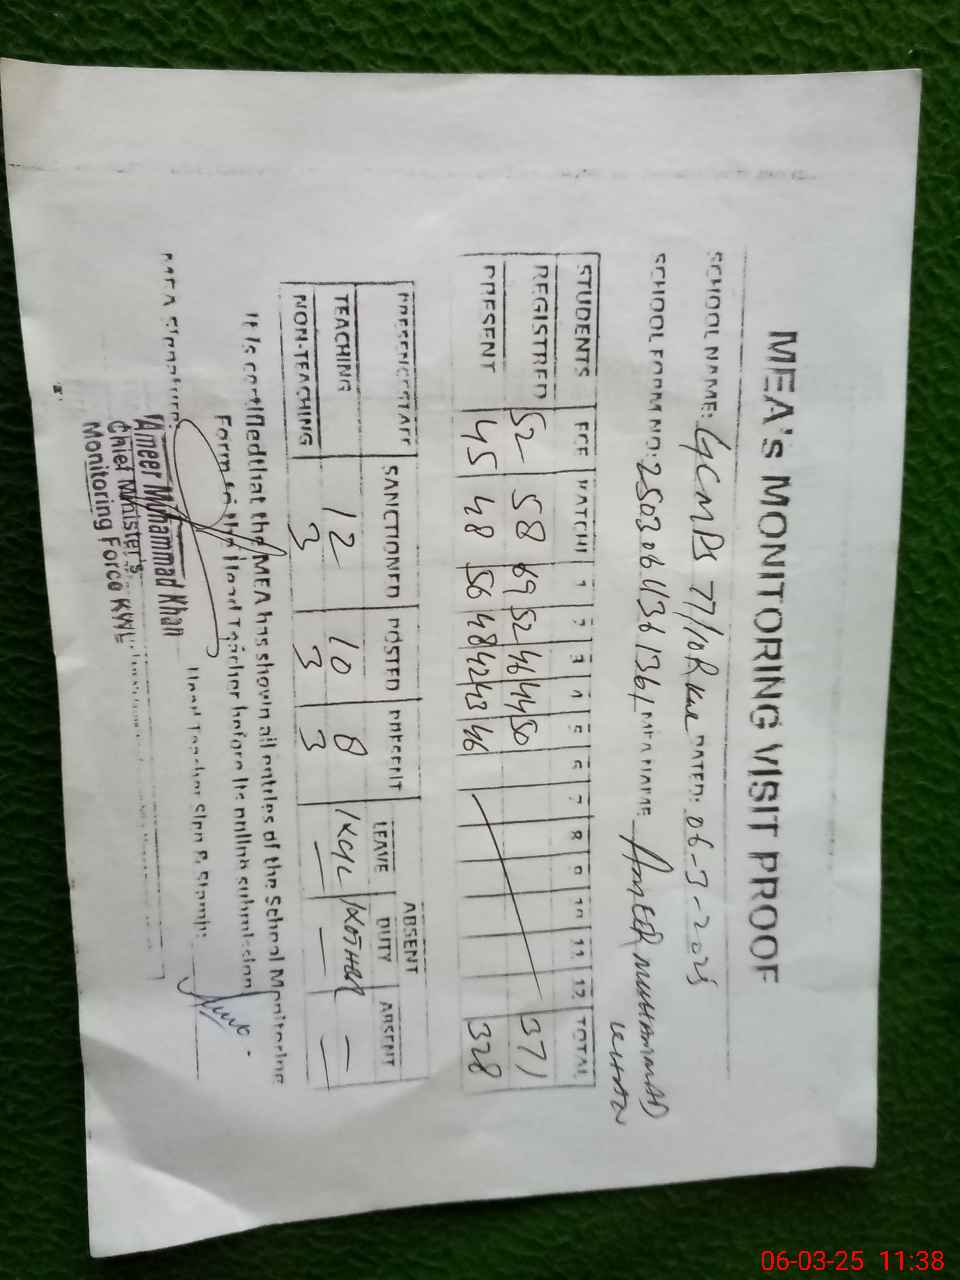 MEA's MONITORING VISIT PROOF
SCHOOL NAME: GCMPS 77/10R KWL DATED: 06-3-2025
SCHOOL FORM NO: 250306436 1361 MEA NAME AMEER MUHAMMAD
KHAN
STUDENTS ECE KATCHI 1 2 3 4 5 6 7 8 9 10 11 12 TOTAL
REGISTRED 52 58 69 52 46 44 50 371
PRESENT 45 48 56 48 42 43 46 328
PRESENCE STAFF SANCTIONED POSTED PRESENT ABSENT
LEAVE DUTY ABSENT
TEACHING 12 10 8 1 1 —
NON-TEACHING 3 3 3 — — —
It is certified that the MEA has shown all entries of the School Monitoring
Form to the Head Teacher before its online submission
MEA Signature: Head Teacher Sign & Stamp:
Ameer Muhammad Khan
Chief Minister's
Monitoring Force KWL
06-03-25 11:38